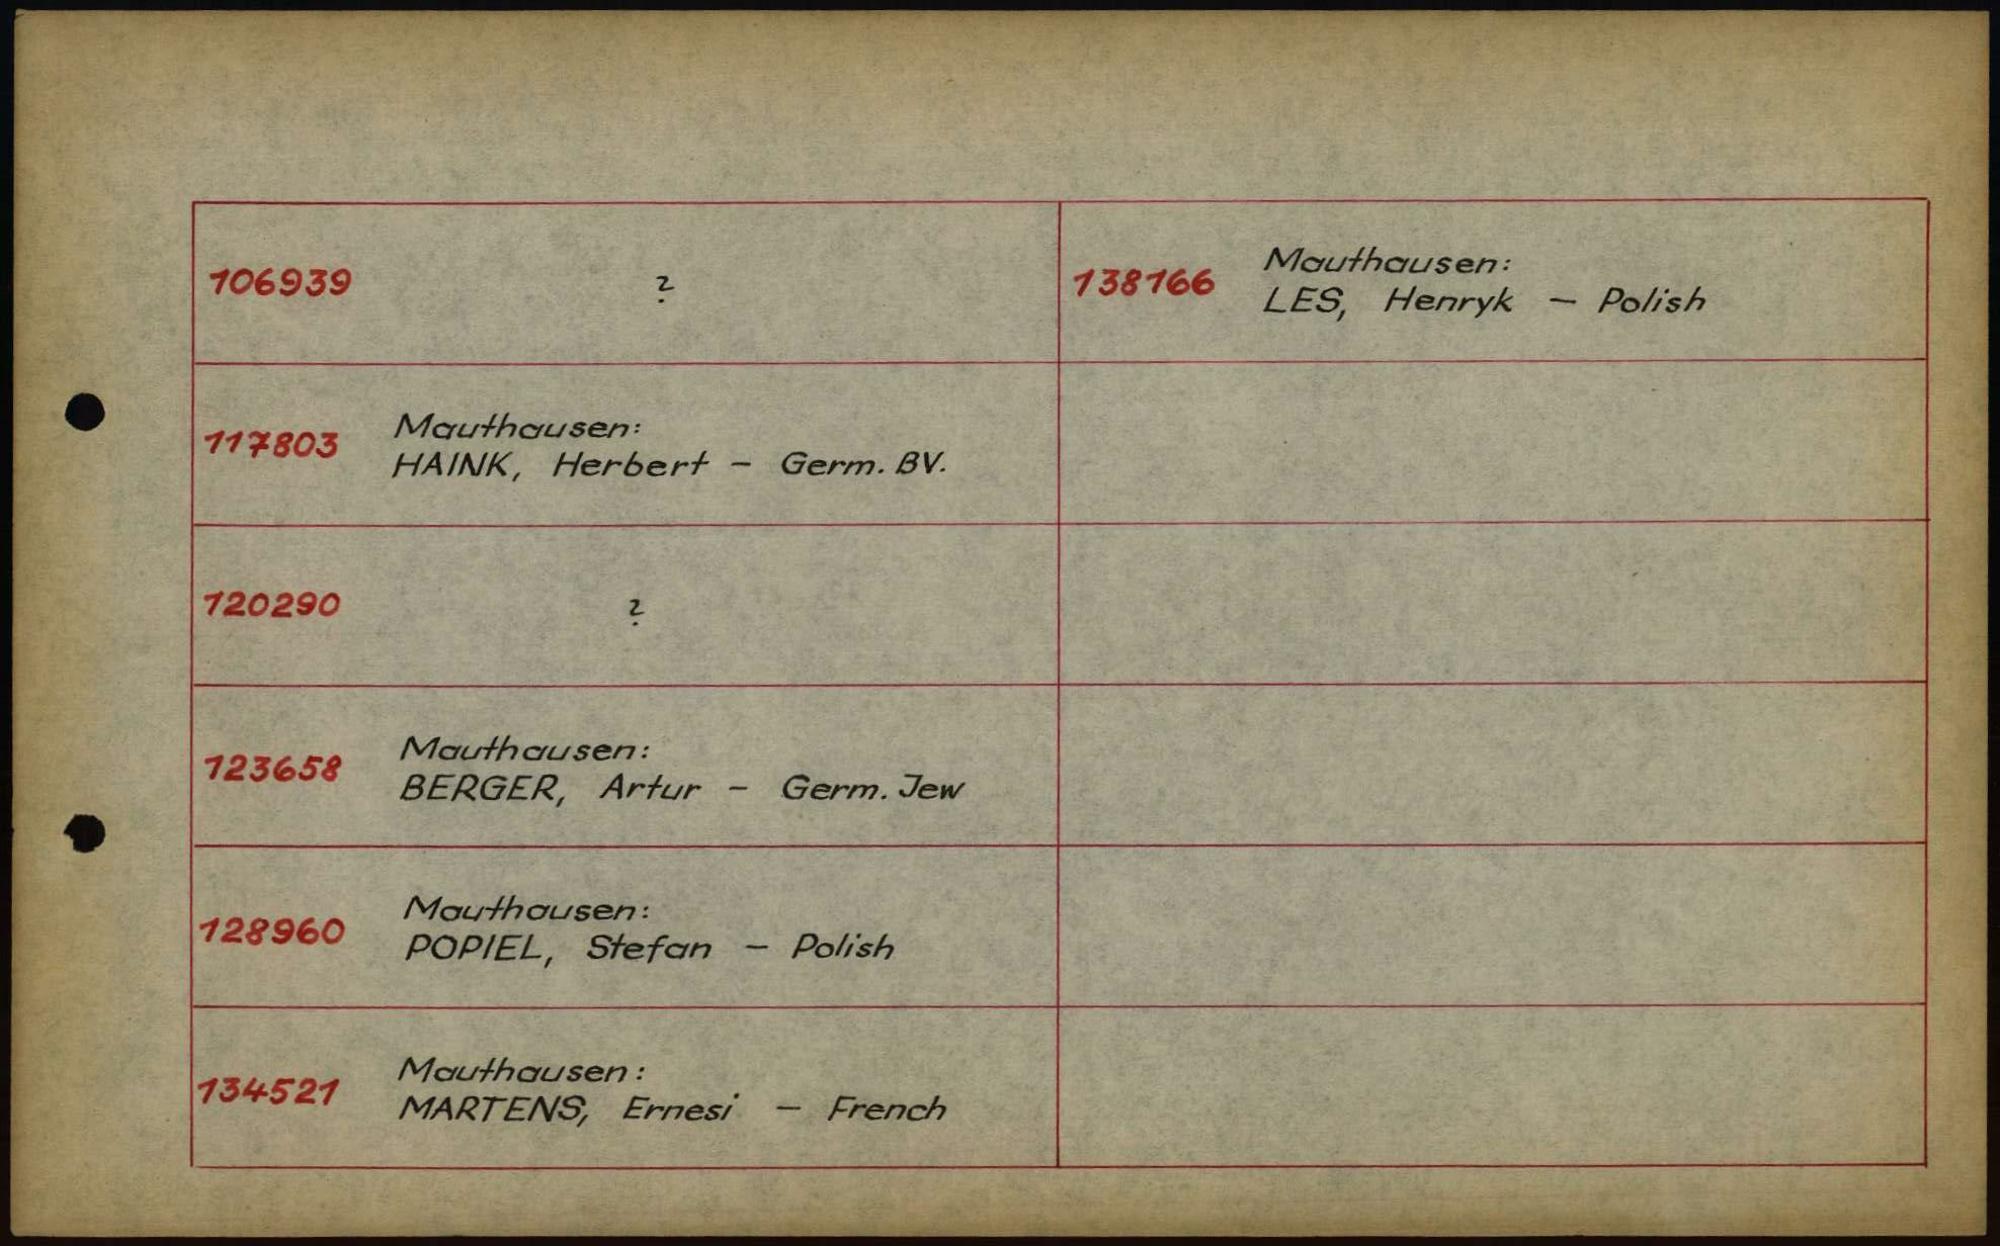 106939 ?
117803 Mauthausen:
HAINK, Herbert – Germ. BV.
120290 ?
123658 Mauthausen:
BERGER, Artur – Germ. Jew
128960 Mauthausen:
POPIEL, Stefan – Polish
134521 Mauthausen:
MARTENS, Ernesi – French
138166 Mauthausen:
LES, Henryk – Polish